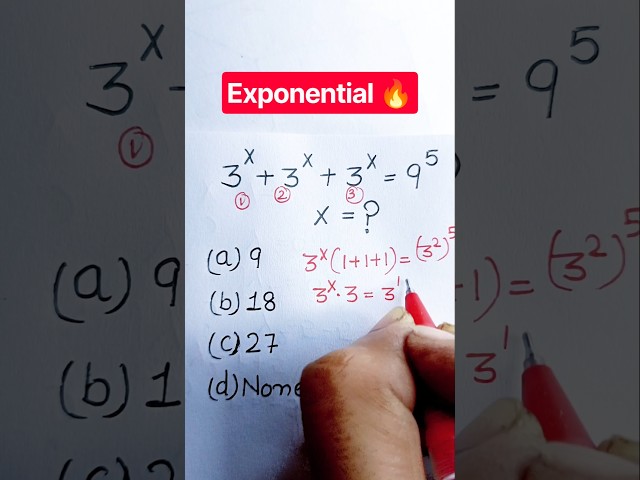 Exponential 🔥
3^x + 3^x + 3^x = 9^5
1 2 3
x = ?
(a) 9
3^x (1+1+1) = (3^2)^5
(b) 18
3^x · 3 = 3^1
(c) 27
(d) None